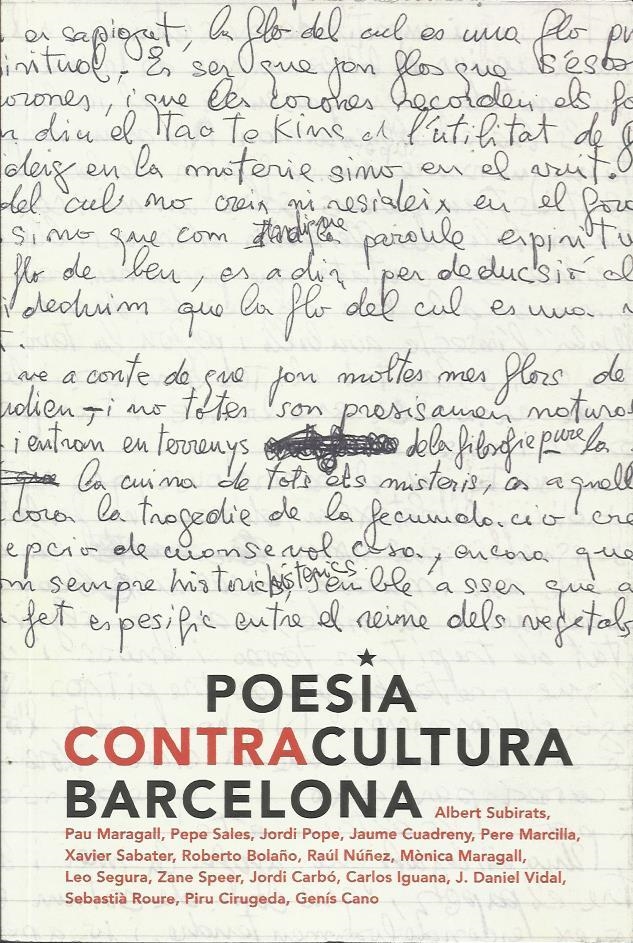 es sapigut, la flo del cul es una flo
iritual. Es ser que jan flos que s'esbo
orones, i que les corones recorden els fo
n diu el Tao te King et l'utilitat de
ideig en la materie sino en el vuit.
del cul no creix ni resideix en el foro
sino que com paroule espiritu
flo de ben, es a dir, per deducsió al
i deduim que la flo del cul es una
t.
ve a conte de que jan moltes mes flors de
udien, i no totes son presisamen natural
i entran en terrenys de la filosofie pure la
la cuina de tots els misteris, es aquell
cora la tragedie de la fecundacio cre
epcio de cuansevol cosa, encora que
om sempre historics, istenics senble asser que a
n fet espesific entre el reime dels vegetals
POESIA
CONTRACULTURA
BARCELONA Albert Subirats,
Pau Maragall, Pepe Sales, Jordi Pope, Jaume Cuadreny, Pere Marcilla,
Xavier Sabater, Roberto Bolaño, Raúl Núñez, Mònica Maragall,
Leo Segura, Zane Speer, Jordi Carbó, Carlos Iguana, J. Daniel Vidal,
Sebastià Roure, Piru Cirugeda, Genís Cano